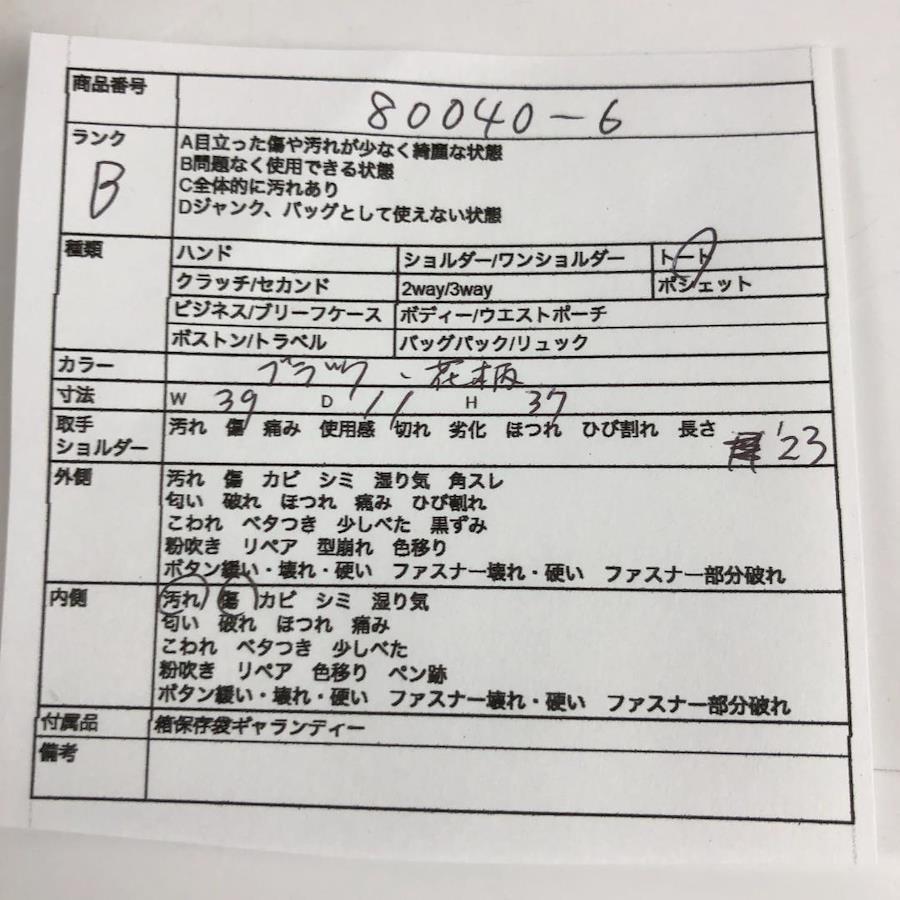 商品番号 80040-6
ランク B
A目立った傷や汚れが少なく綺麗な状態
B問題なく使用できる状態
C全体的に汚れあり
Dジャンク、バッグとして使えない状態
種類 ハンド ショルダー/ワンショルダー トート
クラッチ/セカンド 2way/3way ポシェット
ビジネス/ブリーフケース ボディー/ウエストポーチ
ボストン/トラベル バッグパック/リュック
カラー ブラック、花柄
寸法 W 39 D 11 H 37
取手 汚れ 傷 痛み 使用感 切れ 劣化 ほつれ ひび割れ 長さ 23
ショルダー
外側 汚れ 傷 カビ シミ 湿り気 角スレ
匂い 破れ ほつれ 痛み ひび割れ
こわれ ベタつき 少しべた 黒ずみ
粉吹き リペア 型崩れ 色移り
ボタン緩い・壊れ・硬い ファスナー壊れ・硬い ファスナー部分破れ
内側 汚れ 傷 カビ シミ 湿り気
匂い 破れ ほつれ 痛み
こわれ ベタつき 少しべた
粉吹き リペア 色移り ペン跡
ボタン緩い・壊れ・硬い ファスナー壊れ・硬い ファスナー部分破れ
付属品 箱保存袋ギャランティー
備考